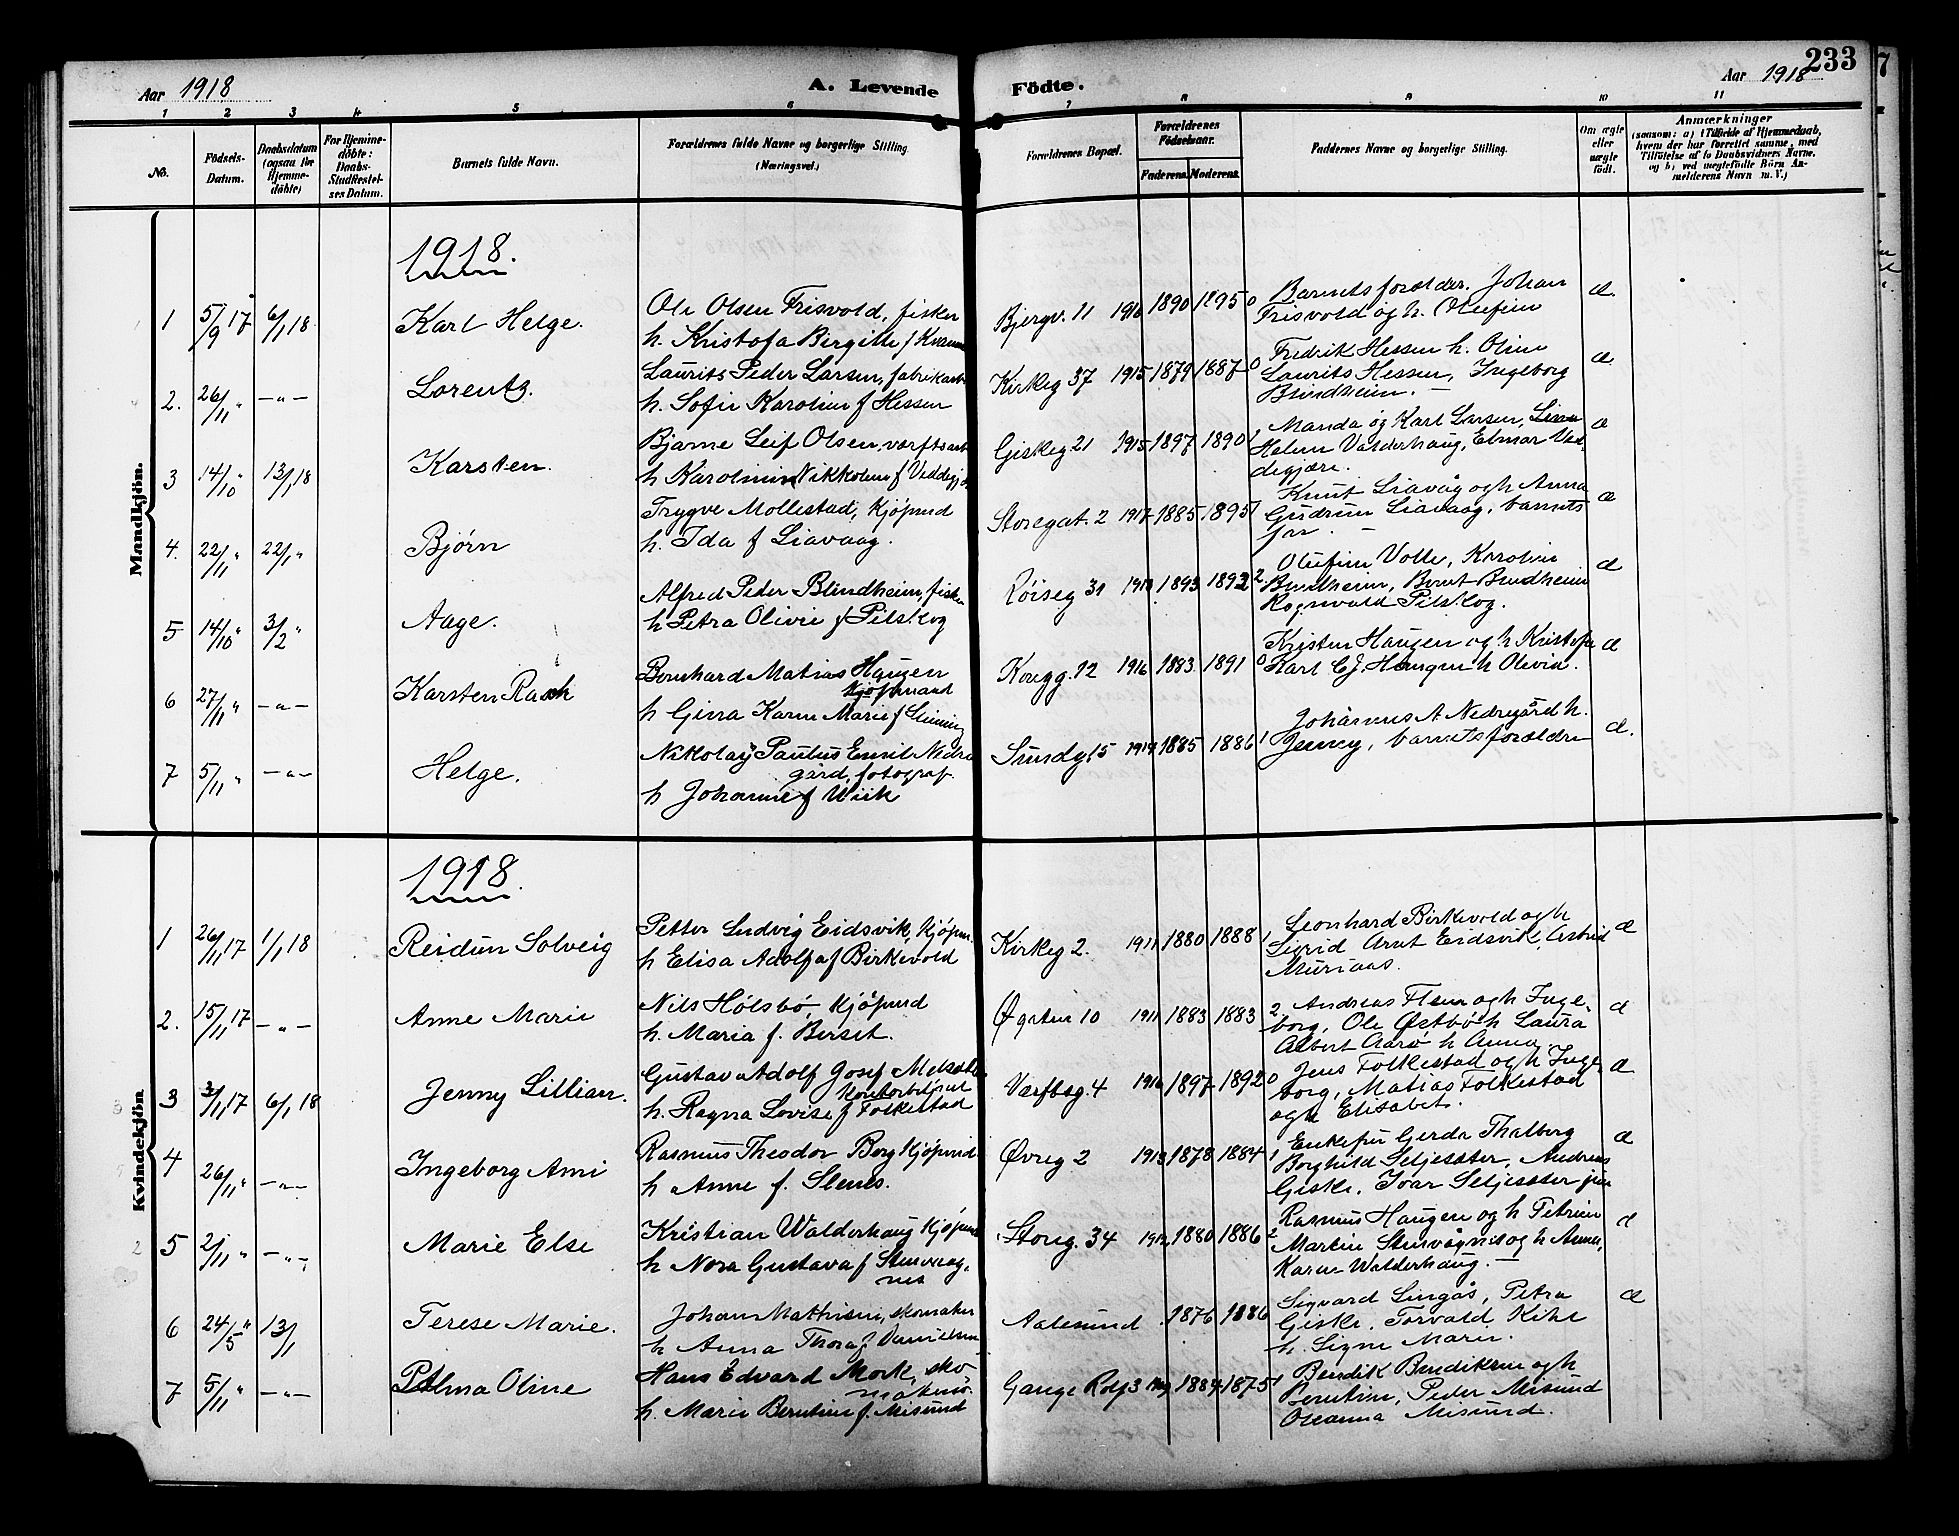 233
Aar 1918
A. Levende Födte.
Aar 1918
1 2 3 4 5 6 7 8 9 10 11
No.
Födsels-Datum.
Daabsdatum (ogsaa for Hjemmedöbte)
For Hjemmedöbte: Daabs-Stadfestelses Datum.
Barnets fulde Navn.
Forældrenes fulde Navne og borgerlige Stilling (Næringsvei.)
Forældrenes Bopæl.
Forældrenes Födselsaar.
Faderens. Moderens.
Faddernes Navne og borgerlige Stilling.
Om ægte eller uægte födt.
Anmærkninger
(saasom: a) i Tilfælde af Hjemmedaab,
hvem der har forrettet samme, med
Tilföielse af to Daabsvidners Navne,
og b) ved uægtefödte Börn Anmelderens Navn m. V.)
Mandkjön.
1918.
1 5/9 17 6/1 18 Karl Helge.
Ole Olsen Frisvold, fisker
h. Kristofa Birgitte f
Bjergv. 11 1916 1890 1895 0
Barnets forælder. Johan
Frisvold og h. Olufine
æ.
2. 26/11 " -"- Lorentz.
Laurits Peder Larsen, fabrikarb
h. Sofie Karoline f Hessen
Kirkeg 37 1915 1879 1887 0
Fredrik Hessen h. Oline
Laurits Hessen, Ingeborg
Blindheim. -
æ
3 14/10 " 13/1 18 Karsten.
Bjarne Leif Olsen, værftsarb
h Karoline Nikkoline f
Giskeg 21 1915 1897 1890 1
Manda og Karl Larsen,
Helene Valderhaug, Elmar Ved-
degjære.
æ
4. 22/11 " 22/1 " Bjørn
Trygve Mollestad, Kjöpmd
h. Ida f Liavaag.
Storegat. 2 1917 1885 1895 1
Knut Liavåg og h Anna
Gudrun Liavaag, barnets
far. -
æ
5 14/10 " 3/2 " Aage.
Alfred Peder Blindheim, fisker
h Petra Olivie f Pilskog
Röiseg 31 1893 1892 2
Olufine Volle, Karoline
Blindheim, Bernt Blindheim
Rognvald Pilskog.
æ
6 27/11 " -"- Karsten
Bernhard Matias Haugen
kjöpmand
h Gina Karen Marie f
Kongg. 12 1916 1883 1891 0
Kristen Haugen og h Kristofa
Karl Haugen h Olevia.
æ
7 5/11 " -"- Helge.
Nikolay Paulus Emil Nedre
gård, fotograf
h Johanne f Wiik
Sundg. 15 1885 1886 1
Johannes A Nedregård h.
Jenney, barnets forældre
æ.
Kvindekjön
1918.
1 26/11 17 1/1 18 Reidun Solveig
Petter Ludvig Eidsvik, kjöpm.
h Elisa Adolfa f Birkevold
Kirkeg 2. 1911 1880 1888 1
Leonhard Birkevold og h
Sigrid Arnt Eidsvik, Astrid
Muriaas.
æ
2. 15/11 17 -"- Anne Marie
Nils Hölsbö, kjöpmd
h. Maria f. Berset.
Øgaten 10 1911 1883 1883 2
Andreas Flem og h Inge-
borg, Ole Østbö h Laura
Albert Aarö h Anna.
æ
3 3/11 17 6/1 18 Jenny Lillian.
Gustav Adolf Josef
h. Ragna Lovise f Folkestad
Værftsg. 4 1916 1897 1892 0
Jens Folkestad og h Inge-
borg, Matias Folkestad
og h Elisabet.
æ
4 26/11 " -"- Ingeborg Ami
Rasmus Theodor Borg Kjöpmd
h Anne f. Stenes.
Øvreg 2 1913 1878 1884 1
Enkefru Gerda Thalberg
Borghild Seljesæter, Andreas
Giske, Ivar Seljesæter jun
æ
5 2/11 " -"- Marie Else
Kristian Walderhaug kjöpmd
h Nora Gustava f Sturvaag-
nes
Storg. 34 1912 1880 1886 2
Rasmus Haugen og h Petrine
Martin Sturvågnes og h Anna,
Karen Walderhaug. -
æ
6 24/5 " 13/1 Terese Marie.
Johan Mathisen, skomaker
h Anna Thora f Danielsen
Aalesund 1876 1886
Sigvard Lingås, Petra
Giske, Torvald Kihl
h. Signe Marie.
æ
7 5/11 " -"- Palma Oline
Hans Edvard Mork, sko-
maker.
h. Marie Berntine f. Misund
Gange Rolf 3 1884 1875 1
Bendik Bendiksen og h
Berntine, Peder Misund
Oleanna Misund.